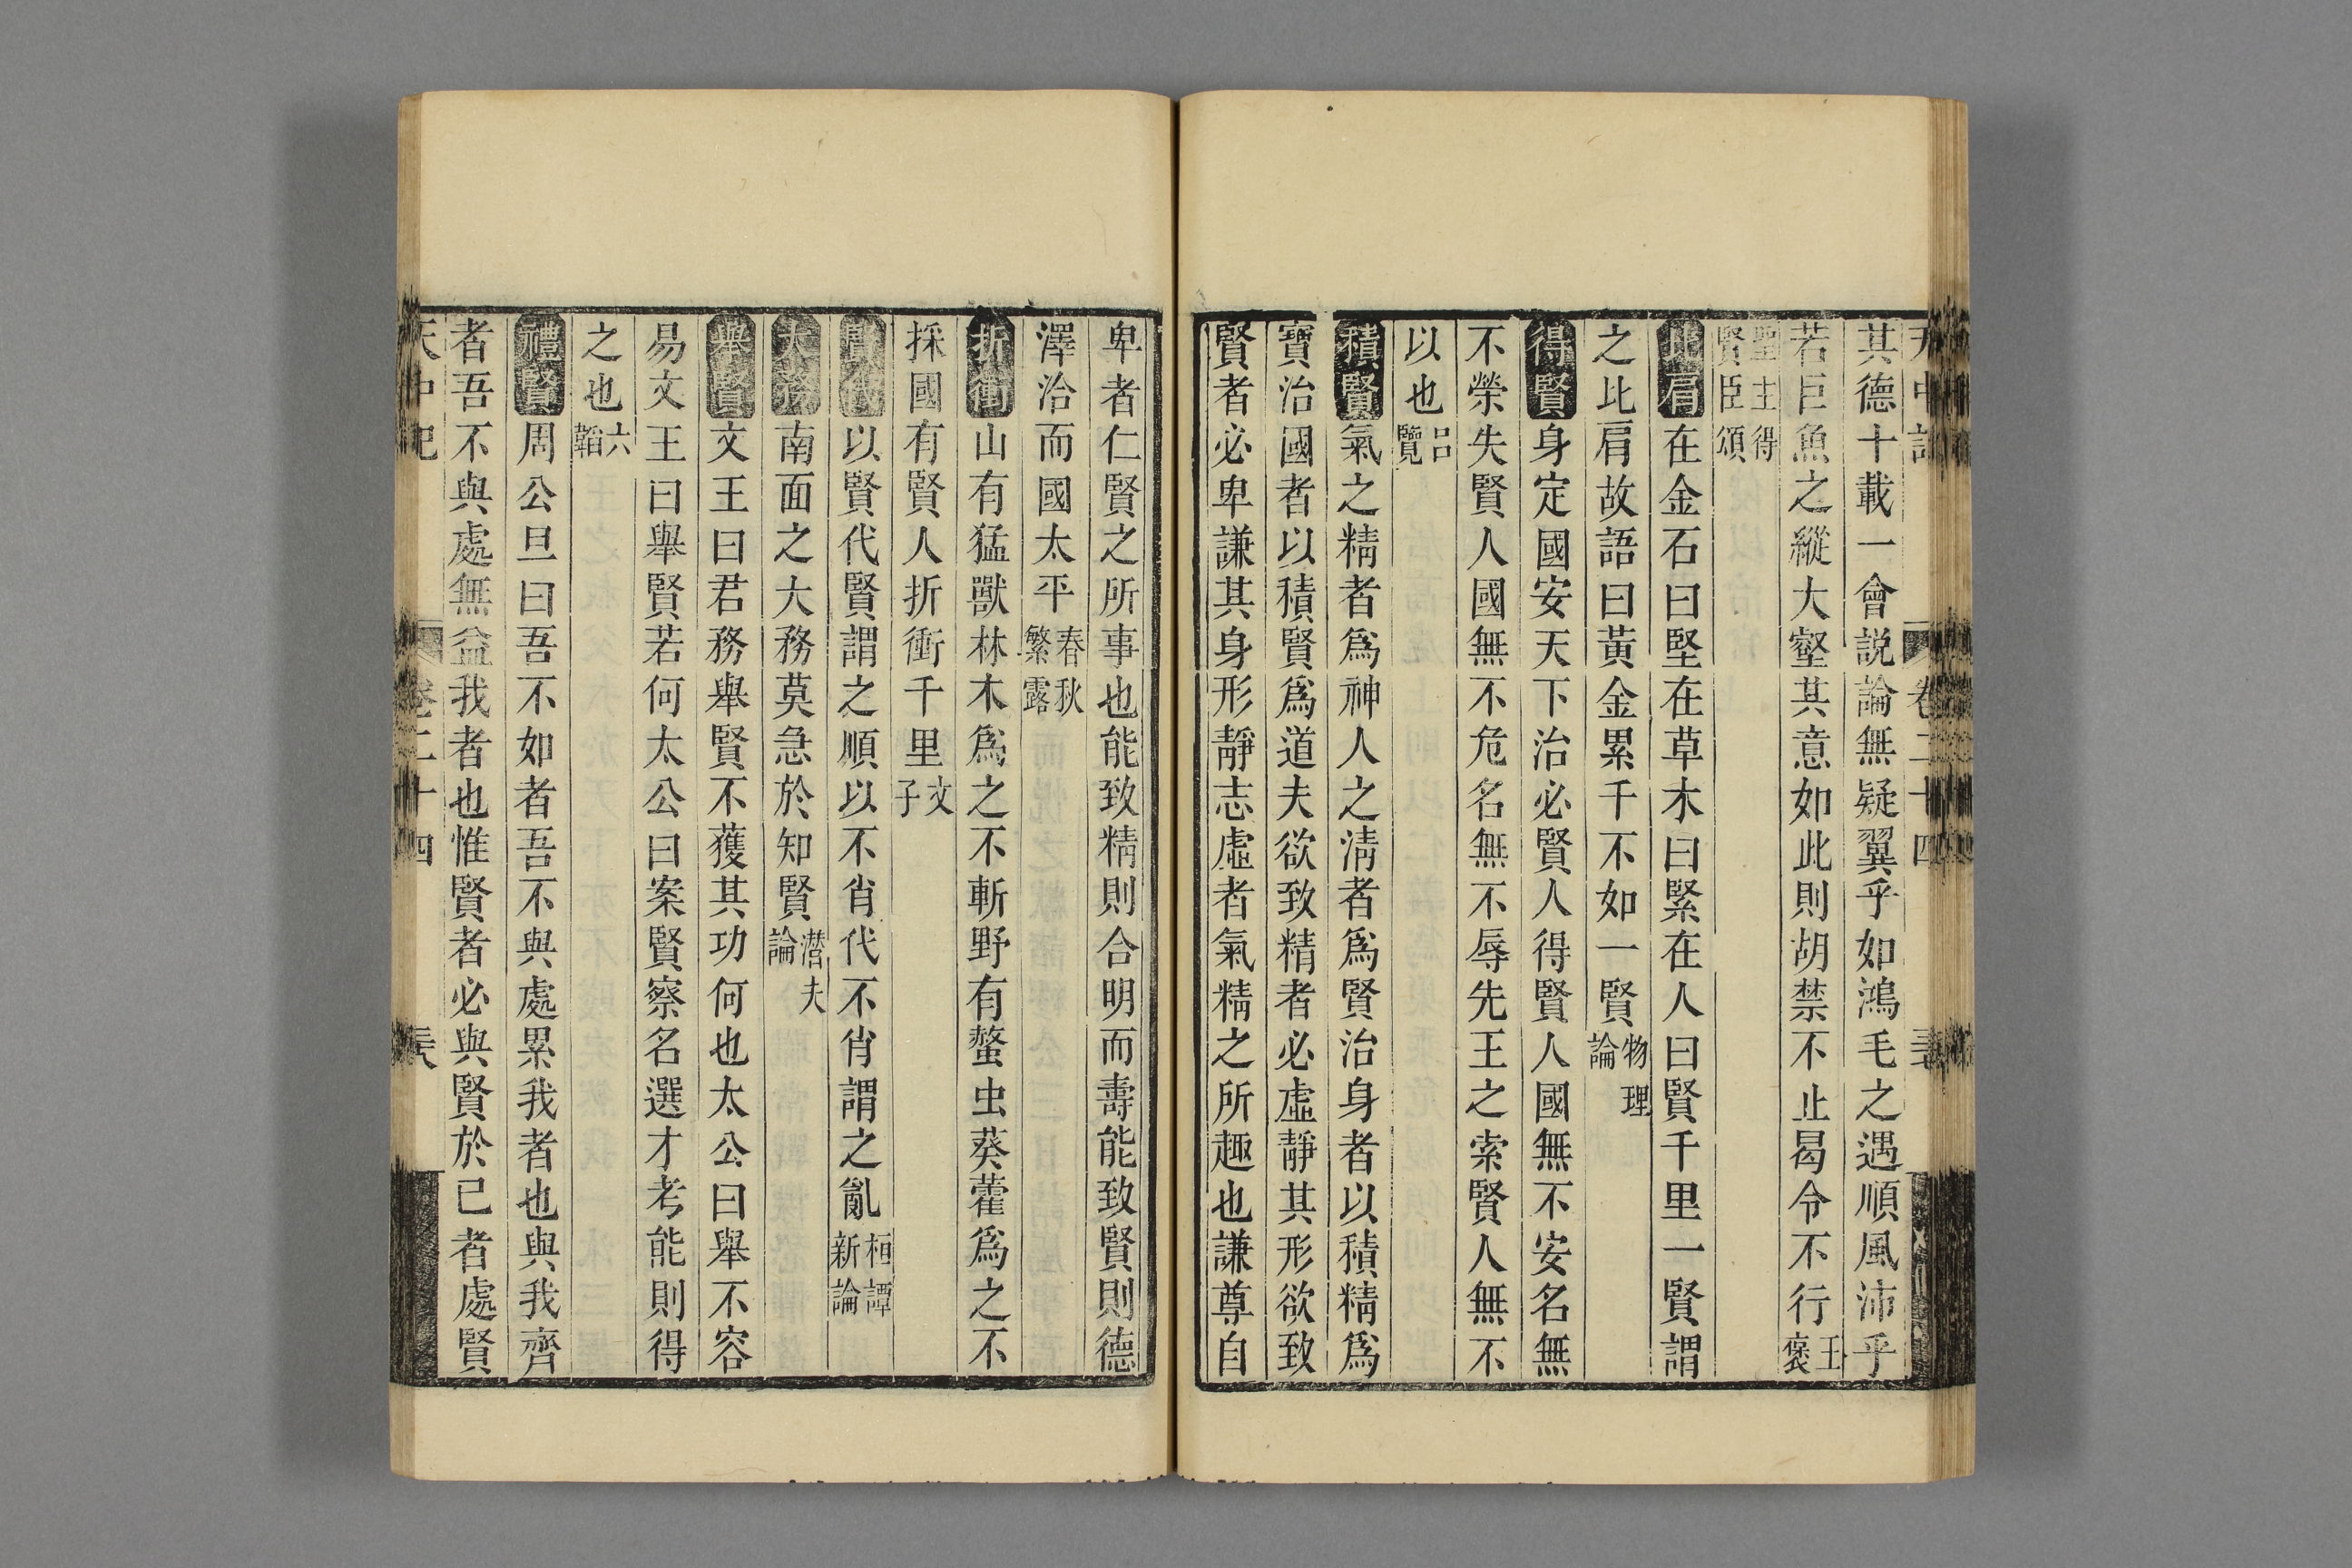 天中記 卷二十四
其德十載一會説論無疑翼乎如鴻毛之遇順風沛乎
若巨魚之縱大壑其意如此則胡禁不止曷令不行王褒
聖主得賢臣頌
比肩在金石曰堅在草木曰緊在人曰賢千里一賢謂
之比肩故語曰黃金累千不如一賢物理論
得賢身定國安天下治必賢人得賢人國無不安名無
不榮失賢人國無不危名無不辱先王之索賢人無不
以也呂覽
積賢氣之精者爲神人之清者爲賢治身者以積精爲
寶治國者以積賢爲道夫欲致精者必虛靜其形欲致
賢者必卑謙其身形靜志虛者氣精之所趣也謙尊自
卑者仁賢之所事也能致精則合明而壽能致賢則德
澤洽而國太平春秋繁露
折衝山有猛獸林木爲之不斬野有螫虫葵藿爲之不
採國有賢人折衝千里文子
賢代以賢代賢謂之順以不肖代不肖謂之亂桓譚新論
大務南面之大務莫急於知賢潛夫論
舉賢文王曰君務舉賢不獲其功何也太公曰舉不容
易文王曰舉賢若何太公曰案賢察名選才考能則得
之也六韜
禮賢周公旦曰吾不如者吾不與處累我者也與我齊
者吾不與處無益我者也惟賢者必與賢於已者處賢
天中記 卷二十四